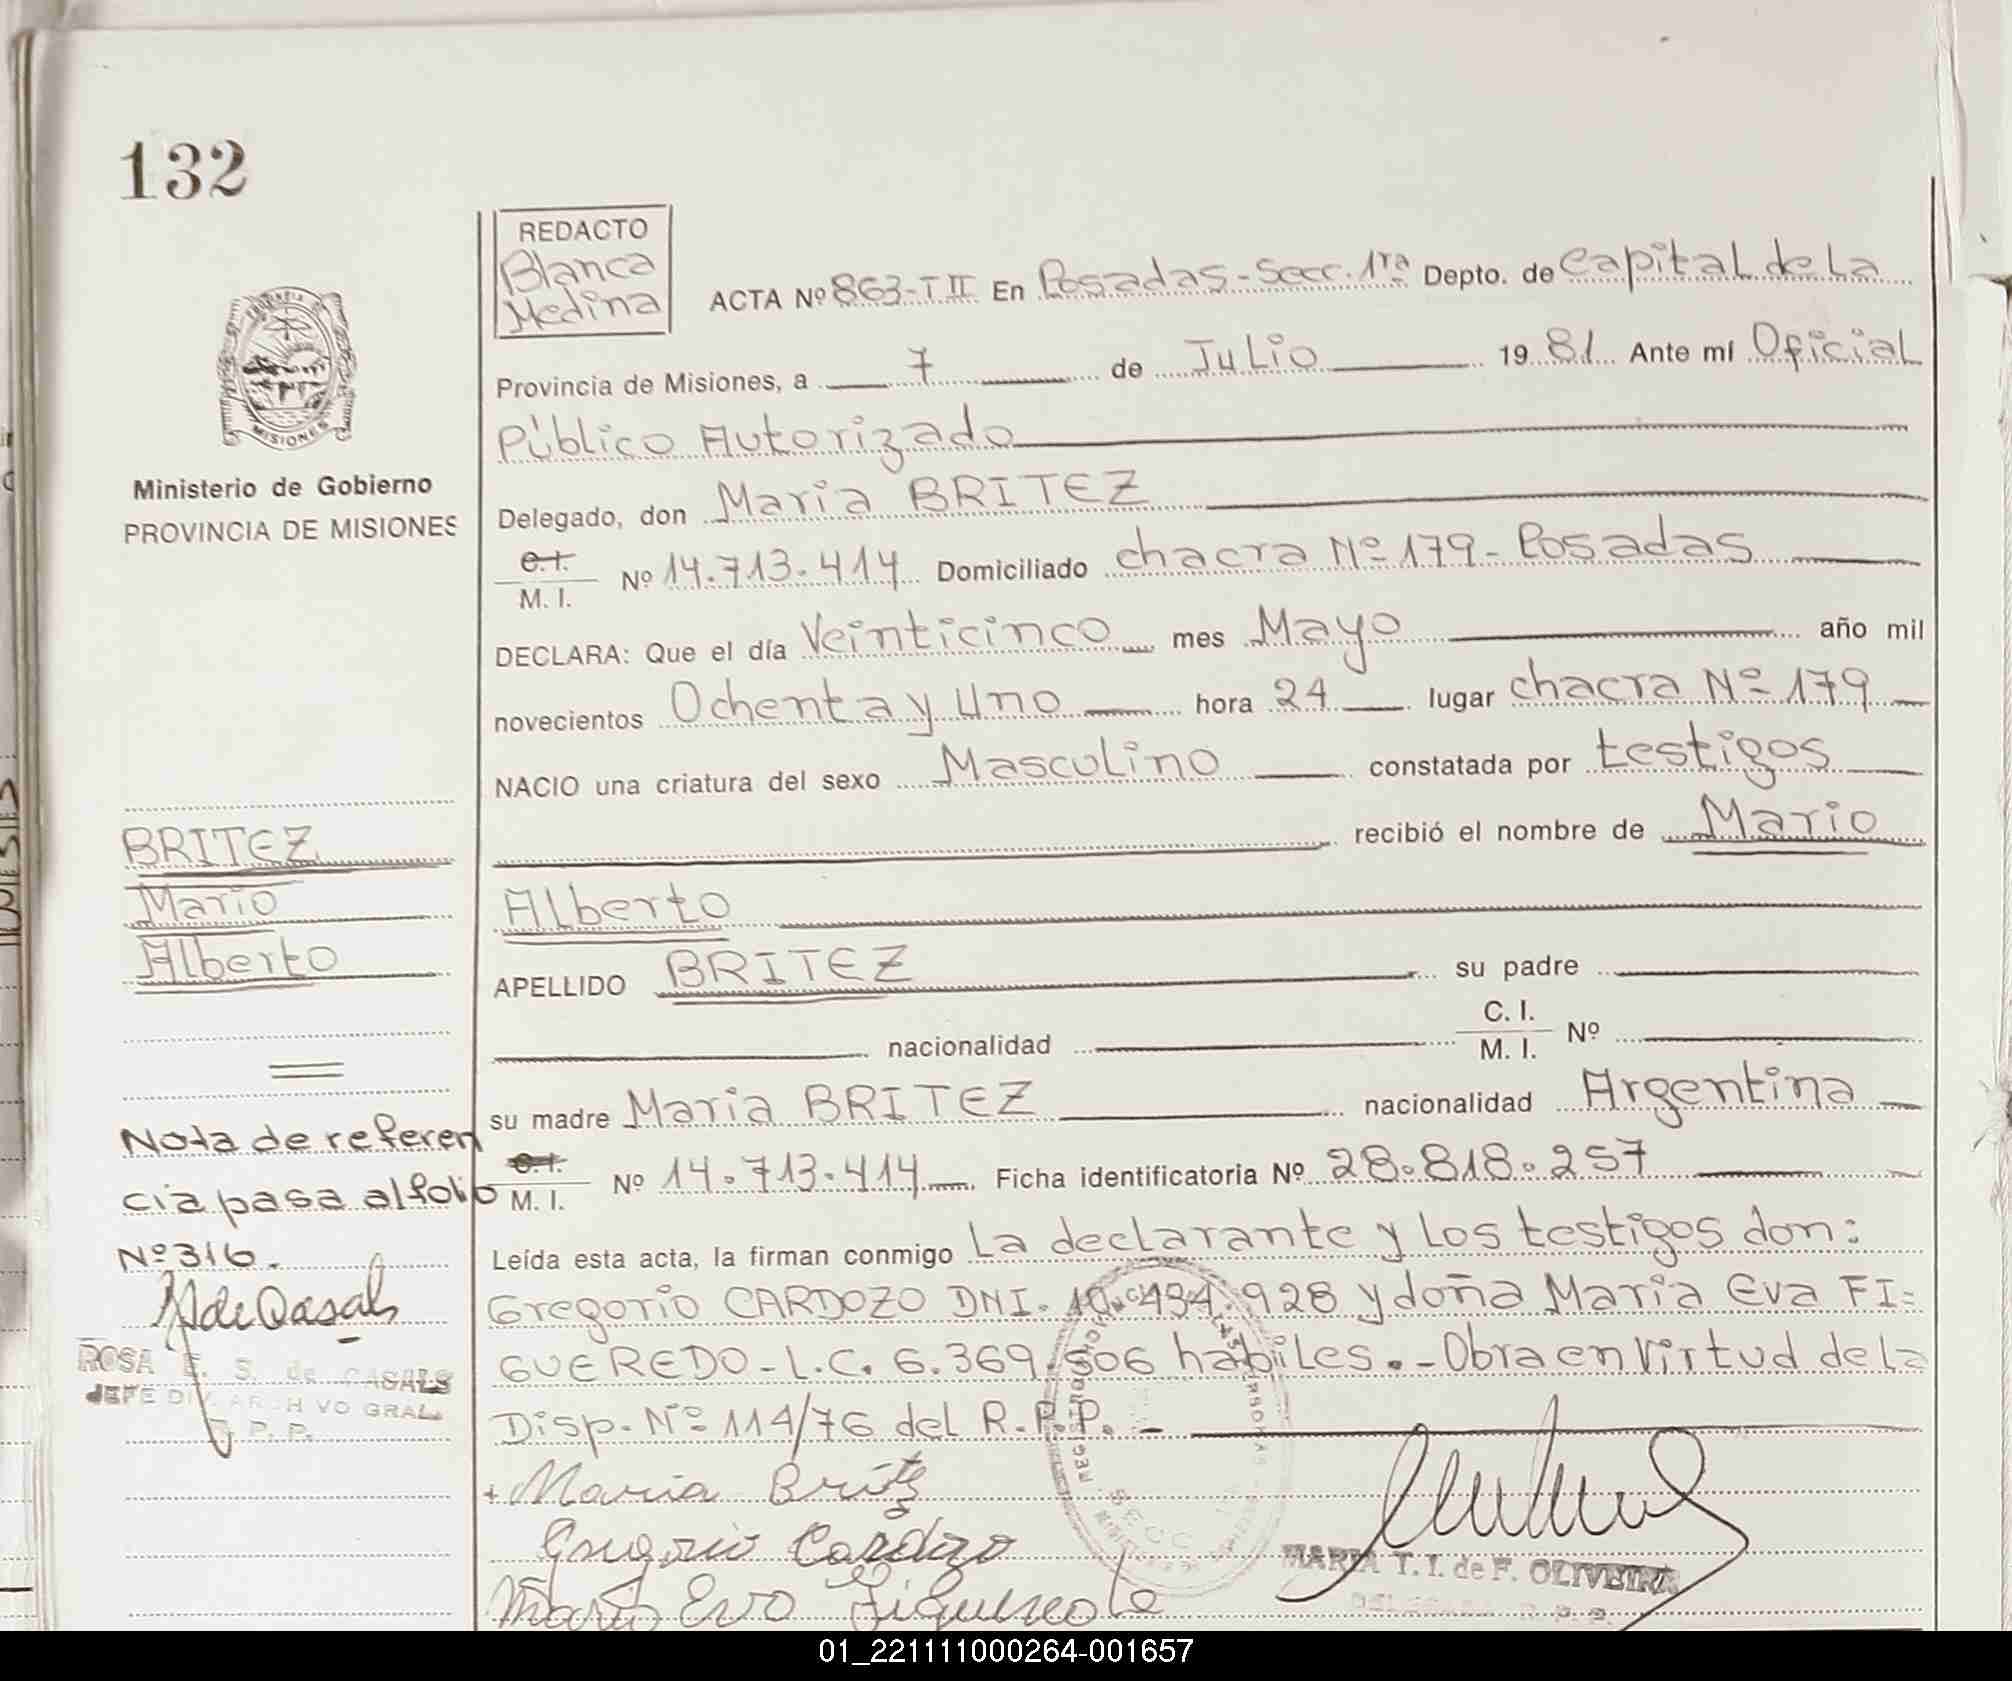 132
REDACTO
Blanca
Medina
ACTA Nº 863-TII En Posadas-Secc. 1ra Depto. de Capital de La
Provincia de Misiones, a 7 de Julio 19 81 Ante mí Oficial
Público Autorizado
Delegado, don Maria BRITEZ
C.I.
M. I. Nº 14.713.414 Domiciliado chacra Nº 179 - Posadas
DECLARA: Que el día Veinticinco mes Mayo año mil
novecientos Ochenta y Uno hora 24 lugar chacra Nº 179
NACIO una criatura del sexo Masculino constatada por testigos
recibió el nombre de Mario
Alberto
APELLIDO BRITEZ su padre
nacionalidad C. I.
M. I. Nº
su madre Maria BRITEZ nacionalidad Argentina
C.I.
M. I. Nº 14.713.414 Ficha identificatoria Nº 28.818.257
Leída esta acta, la firman conmigo La declarante y Los testigos don:
Gregorio CARDOZO DNI. 10.434.928 y doña Maria Eva FI=
GUEREDO - L.C. 6.369.506 habiles.- Obra en Virtud de La
Disp. Nº 114/76 del R.P.P. -
Maria Britez
Gregorio Cardozo
Maria Eva Figueredo
MARIA T. I. de F. OLIVEIRA
MISIONES
Ministerio de Gobierno
PROVINCIA DE MISIONES
BRITEZ
Mario
Alberto
Nota de referen
cia pasa al folio
Nº 316.
ROSA E. S. de CASALS
JEFE DIV. ARCHIVO GRAL.
P. P.
01_221111000264-001657